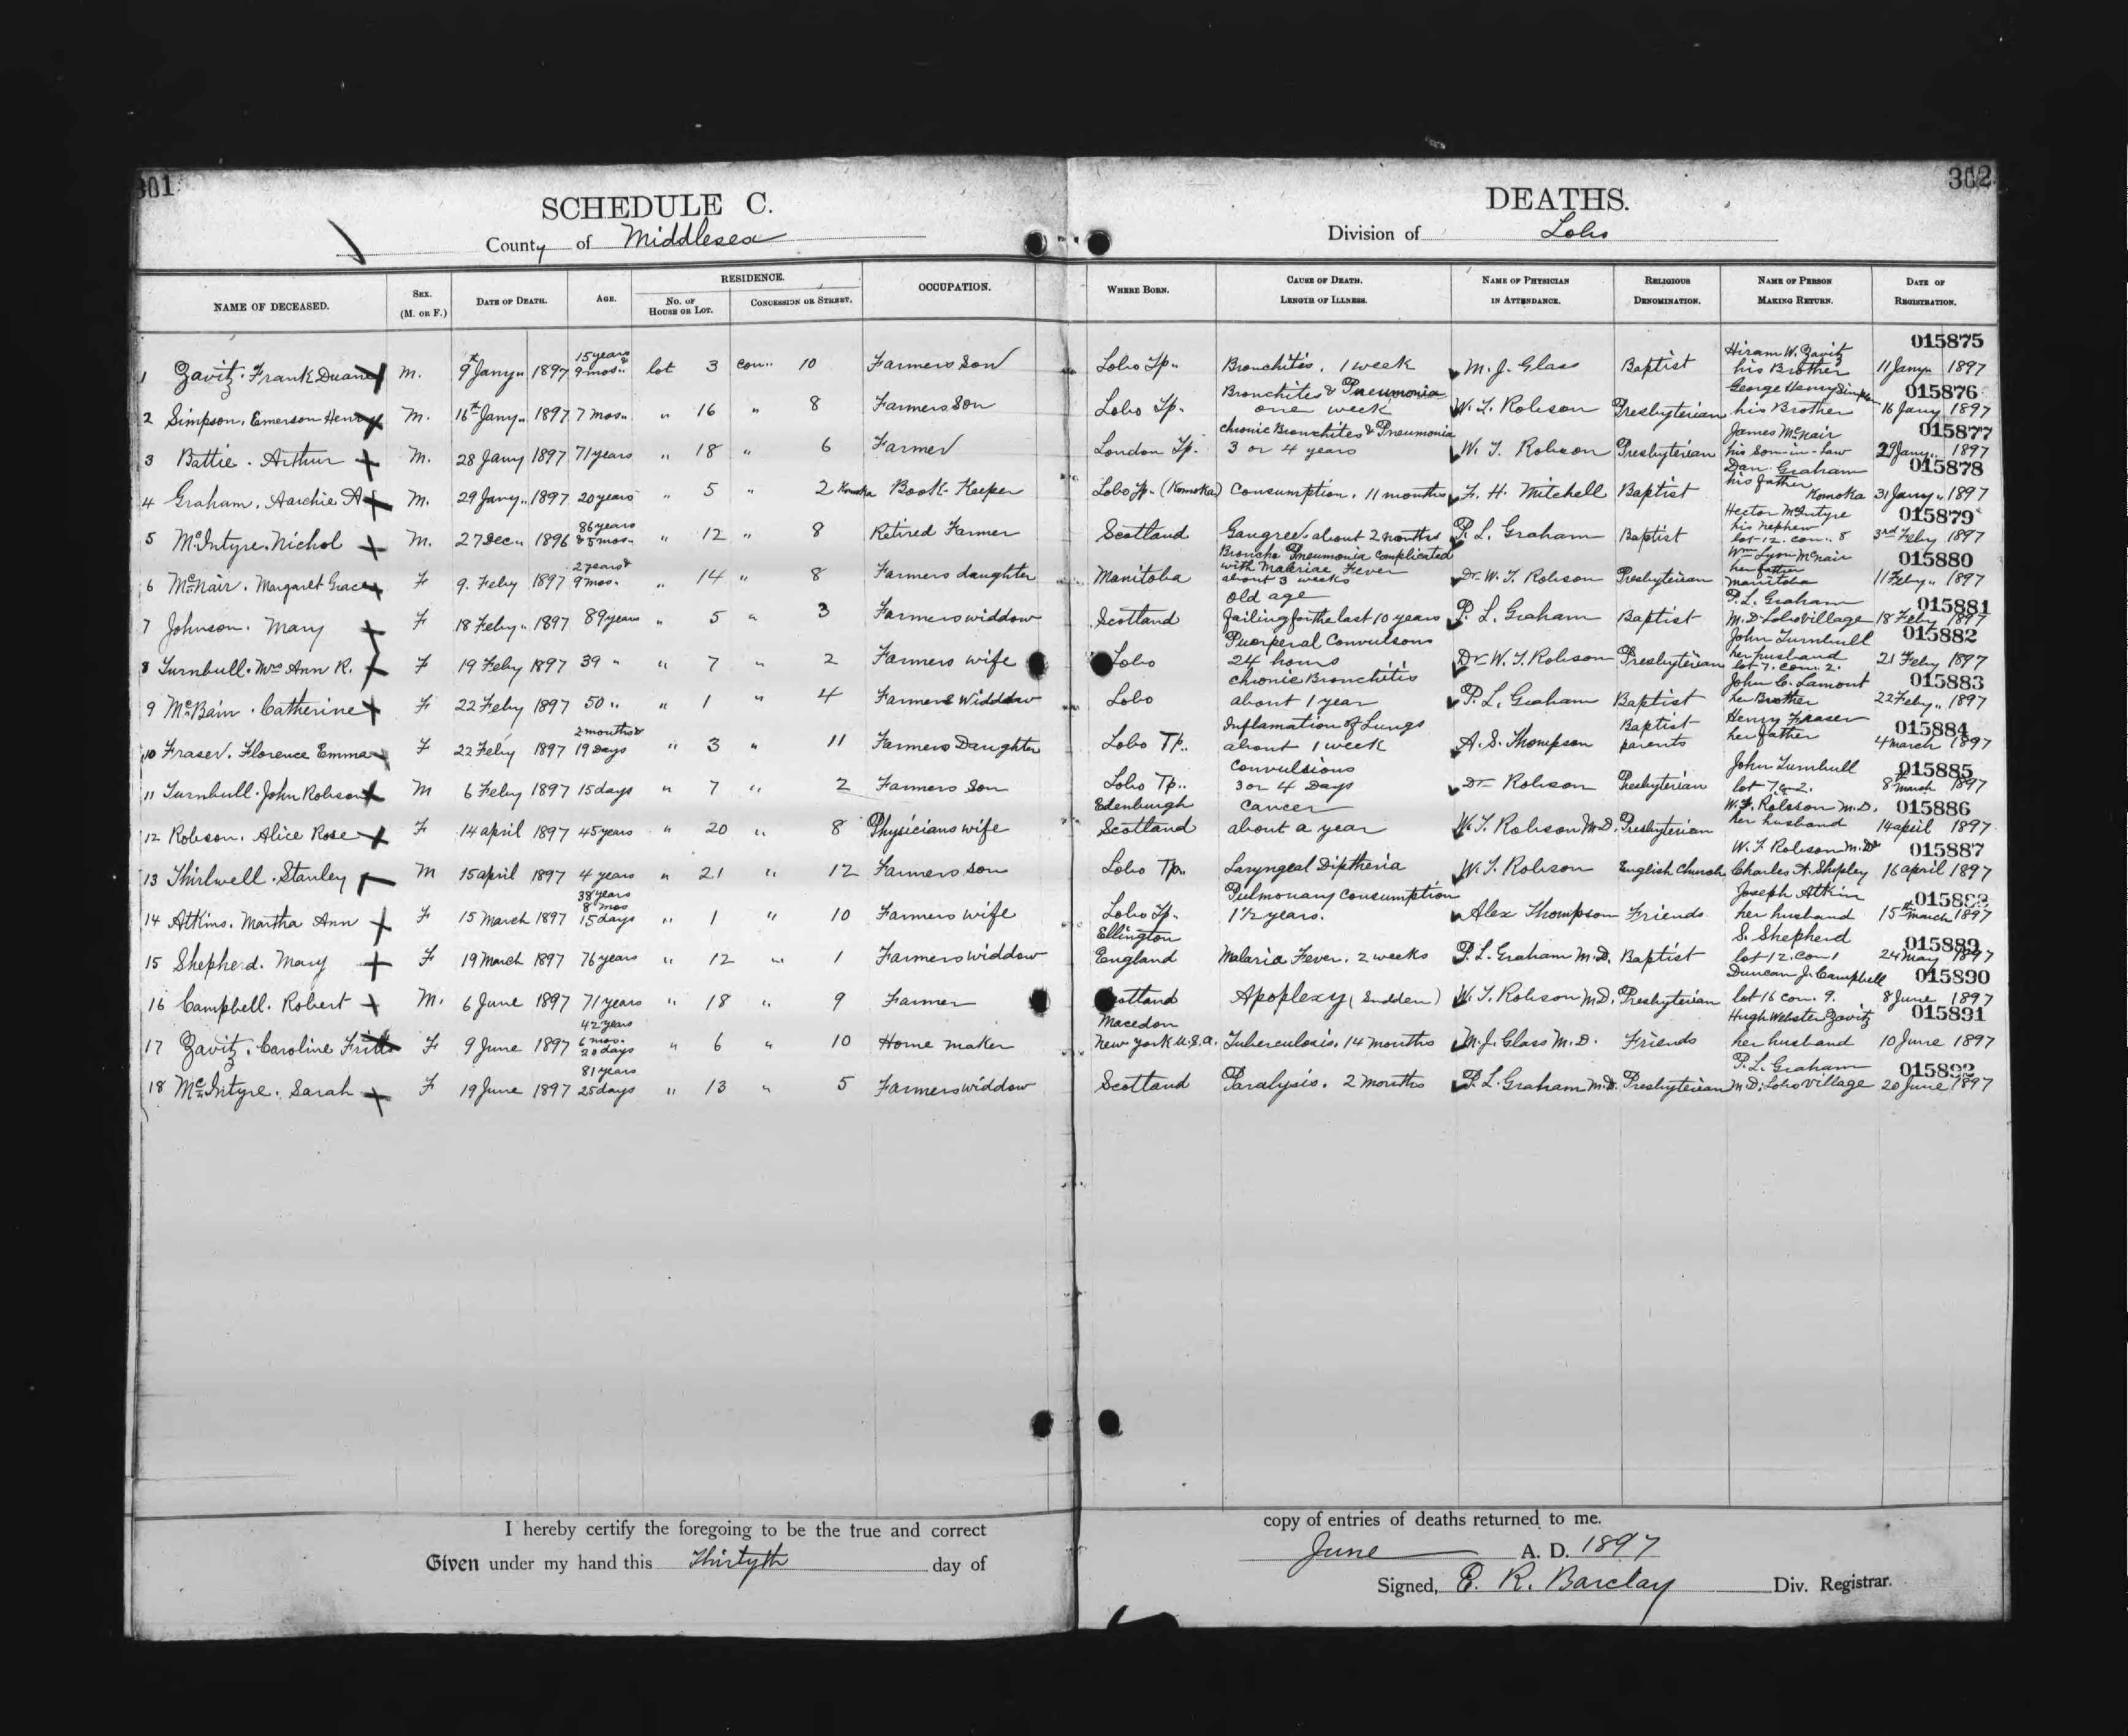 301
302
SCHEDULE C.
DEATHS.
County of Middlesex
Division of Lobo
NAME OF DECEASED. SEX. (M. OR F.) DATE OF DEATH. AGE. RESIDENCE. NO. OF HOUSE OR LOT. CONCESSION OR STREET. OCCUPATION. WHERE BORN. CAUSE OF DEATH. LENGTH OF ILLNESS. NAME OF PHYSICIAN IN ATTENDANCE. RELIGIOUS DENOMINATION. NAME OF PERSON MAKING RETURN. DATE OF REGISTRATION.
015875
1 Zavitz. Frank Duane M. 9th Jany 1897 15 years & 9 mos. lot 3 con 10 Farmers Son Lobo Tp. Bronchitis. 1 week M. J. Glass Baptist Hiram W. Zavitz his Brother 11 Jany 1897
015876
2 Simpson. Emerson Henry M. 16th Jany 1897 7 mos. " 16 " 8 Farmers Son Lobo Tp. Bronchites & Pneumonia one week W. T. Robson Presbyterian George Henry Simpson his Brother 16 Jany 1897
015877
3 Battie. Arthur M. 28 Jany 1897 71 years " 18 " 6 Farmer London Tp. Chronic Bronchites & Pneumonia 3 or 4 years W. T. Robson Presbyterian James McNair his Son-in-Law 29 Jany 1897
015878
4 Graham. Aarchie A M. 29 Jany 1897 20 years " 5 " 2 Komoka Book-Keeper Lobo Tp. (Komoka) Consumption. 11 months F. H. Mitchell Baptist Dan Graham his father Komoka 31 Jany 1897
015879
5 McIntyre. Nichol M. 27 Dec 1896 86 years & 5 mos " 12 " 8 Retired Farmer Scotland Gangree. about 2 months P. L. Graham Baptist Hector McIntyre his nephew lot 12. con. 8 3rd Feby 1897
015880
6 McNair. Margaret Grace F 9. Feby 1897 2 years & 9 mos. " 14 " 8 Farmers daughter Manitoba Broncho Pneumonia complicated with Malariae Fever about 3 weeks Dr W. T. Robson Presbyterian Wm Lyon McNair her father Manitoba 11 Feby 1897
015881
7 Johnson. Mary F 18 Feby 1897 89 years " 5 " 3 Farmers widdow Scotland Old age failing for the last 10 years P. L. Graham Baptist P. L. Graham M.D. Lobo Village 18 Feby 1897
015882
8 Turnbull. Mrs Ann R. F 19 Feby 1897 39 " " 7 " 2 Farmers wife Lobo Puorperal Convulsons 24 hours Dr W. T. Robson Presbyterian John Turnbull her husband lot 7. con. 2. 21 Feby 1897
015883
9 McBain. Catherine F 22 Feby 1897 50 " " 1 " 4 Farmers Widdow Lobo Chronic Bronchitis about 1 year P. L. Graham Baptist John C. Lamont her Brother 22 Feby 1897
015884
10 Fraser. Florence Emma F 22 Feby 1897 2 months & 19 Days " 3 " 11 Farmers Daughter Lobo Tp. Inflamation of Lungs about 1 week A. S. Thompson Baptist parents Henry Fraser her father 4 March 1897
015885
11 Turnbull. John Robson M 6 Feby 1897 15 days " 7 " 2 Farmers Son Lobo Tp. Convulsions 3 or 4 Days Dr Robson Presbyterian John Turnbull lot 7. c. 2. 8th March 1897
015886
12 Robson. Alice Rose F 14 april 1897 45 years " 20 " 8 Physicians wife Edenburgh Scotland Cancer about a year W. T. Robson M.D. Presbyterian W. T. Robson M.D. her husband 14 april 1897
015887
13 Thirlwell. Stanley M 15 april 1897 4 years " 21 " 12 Farmers son Lobo Tp. Laryngeal Diptheria W. T. Robson English Church W. T. Robson M.D. Charles A. Shipley 16 april 1897
01588
14 Atkins. Martha Ann F 15 March 1897 38 years 8 mos 15 days " 1 " 10 Farmers wife Lobo Tp. Pulmonary Consumption 1 1/2 years. Alex Thompson Friends Joseph Atkin her husband 15th March 1897
015889
15 Shepherd. Mary F 19 March 1897 76 years " 12 " 1 Farmers widdow Ellington England Malaria Fever. 2 weeks P. L. Graham M.D. Baptist S. Shepherd lot 12. con 1 24 May 1897
015890
16 Campbell. Robert M. 6 June 1897 71 years " 18 " 9 Farmer Scotland Apoplexy (Sudden) W. T. Robson M.D. Presbyterian Duncan J. Campbell lot 16 con. 9. 8 June 1897
015891
17 Zavitz. Caroline F 9 June 1897 42 years 6 mos. 20 days " 6 " 10 Home maker Macedon New York U.S.A. Tuberculosis. 14 months M. J. Glass M.D. Friends Hugh Webster Zavitz her husband 10 June 1897
015892
18 McIntyre. Sarah F 19 June 1897 81 years 25 days " 13 " 5 Farmers widdow Scotland Paralysis. 2 months P. L. Graham M.D. Presbyterian P. L. Graham M.D. Lobo Village 20 June 1897
I hereby certify the foregoing to be the true and correct copy of entries of deaths returned to me.
Given under my hand this Thirtyth day of June A. D. 1897
Signed, E. R. Barclay Div. Registrar.